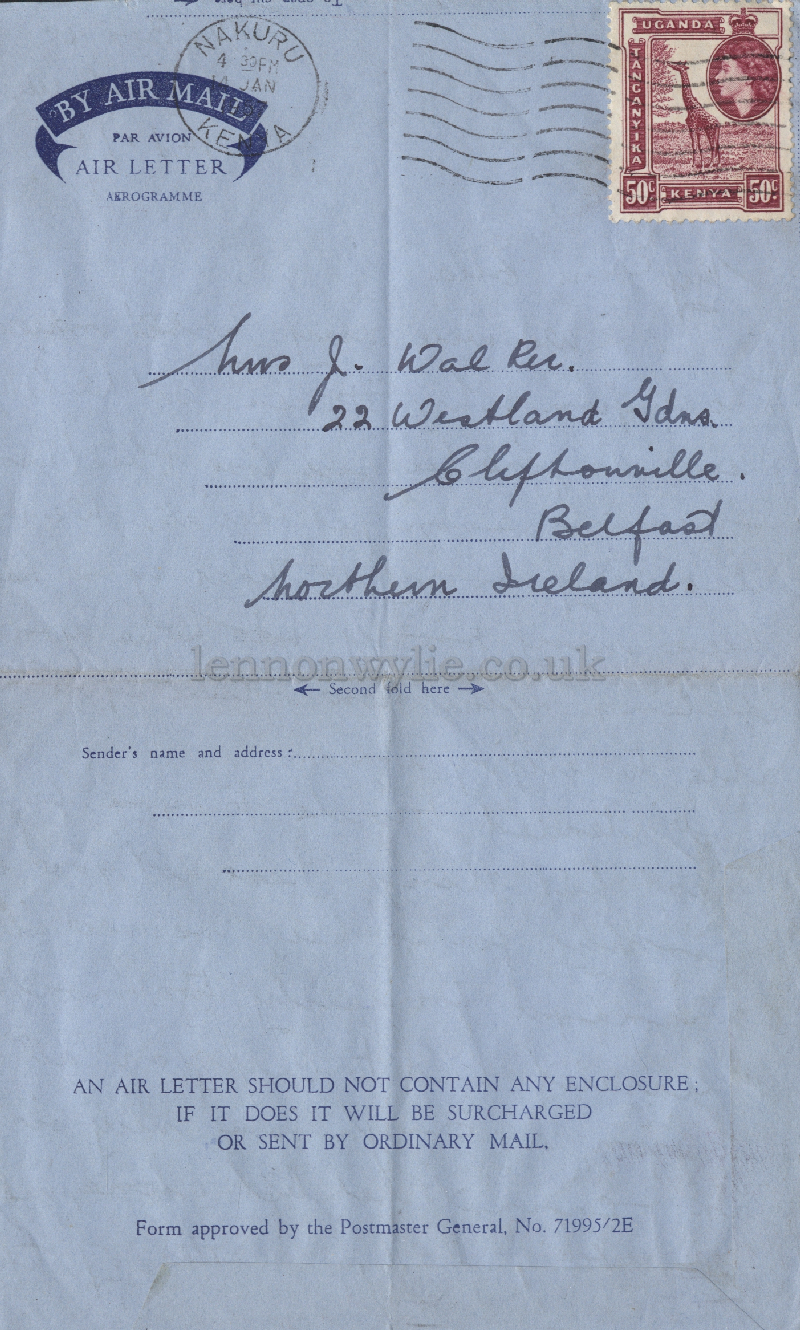 To open cut here
NAKURU
4 30PM
14 JAN
KENYA
BY AIR MAIL
PAR AVION
AIR LETTER
AEROGRAMME
UGANDA
TANGANYIKA
50c KENYA 50c
Mrs J. Walker.
22 Westland Gdns.
Cliftonville.
Belfast
Northern Ireland.
lennonwylie.co.uk
← Second fold here →
Sender's name and address:
AN AIR LETTER SHOULD NOT CONTAIN ANY ENCLOSURE;
IF IT DOES IT WILL BE SURCHARGED
OR SENT BY ORDINARY MAIL.
Form approved by the Postmaster General, No. 71995/2E